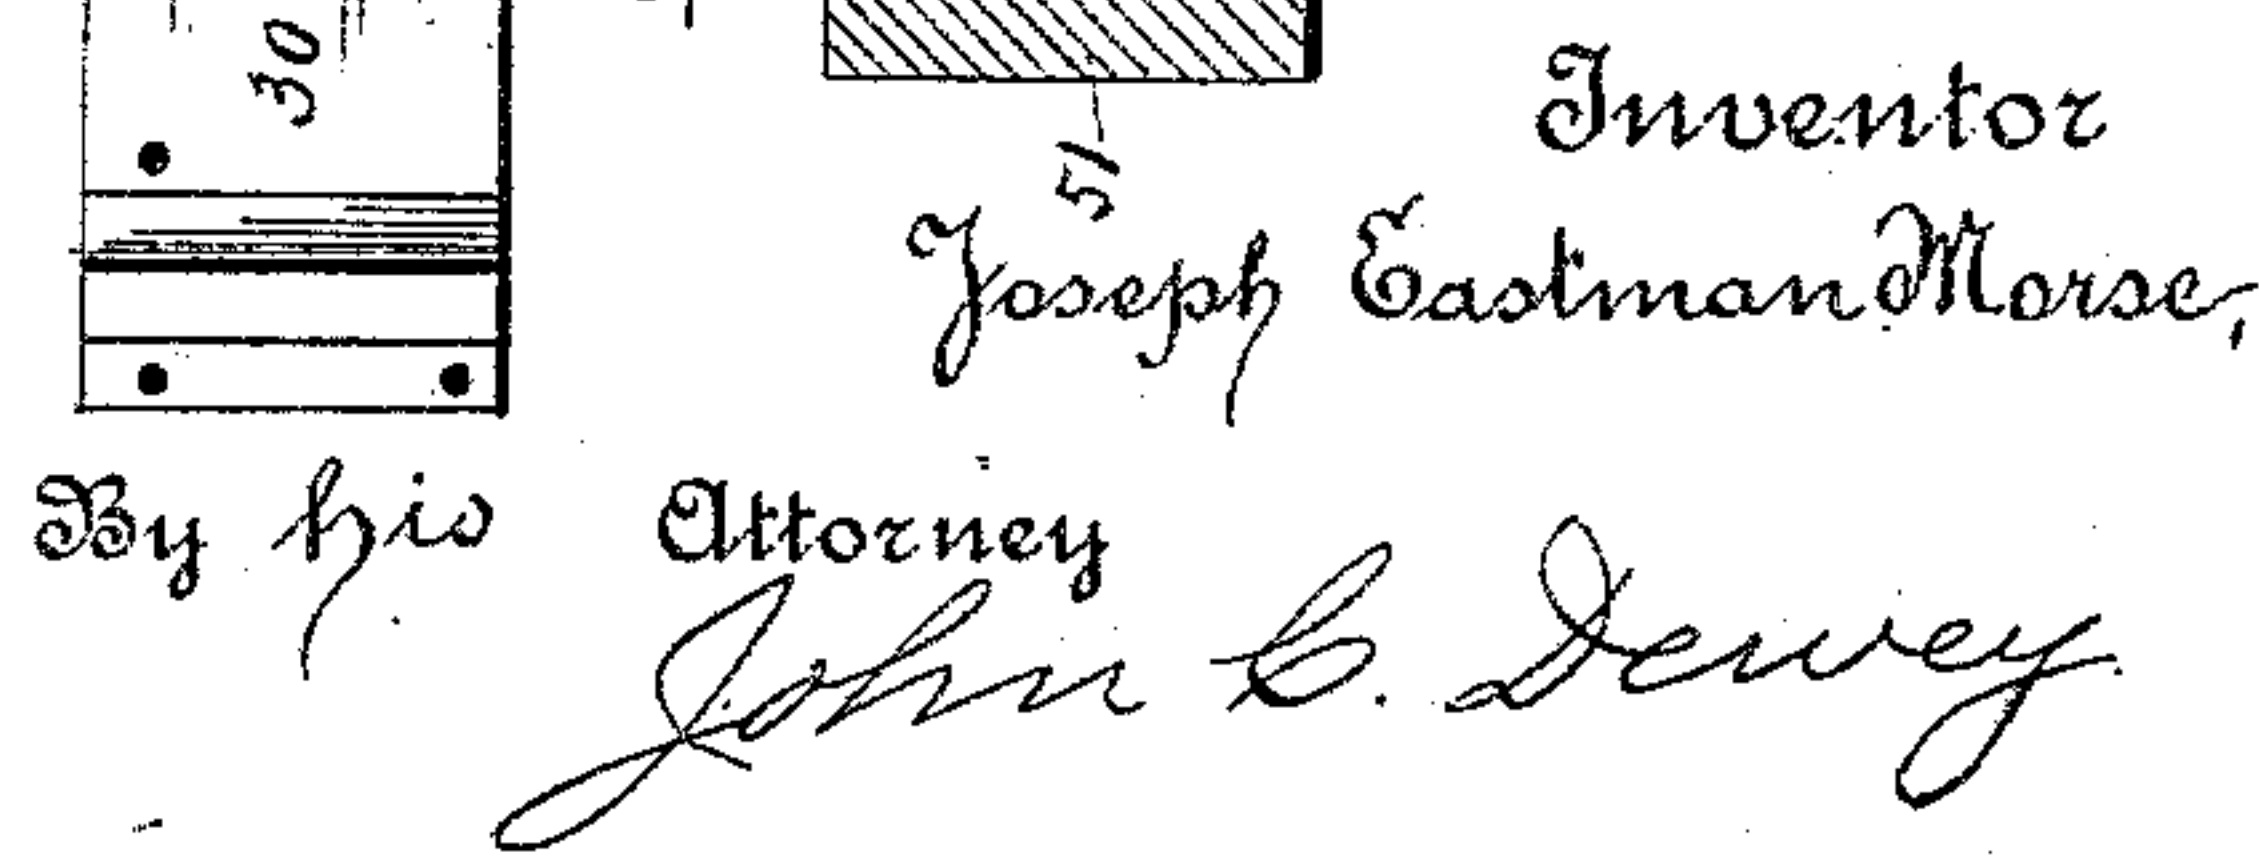 30
51
Inventor
Joseph Eastman Morse,
By his Attorney
John C. Dewey.